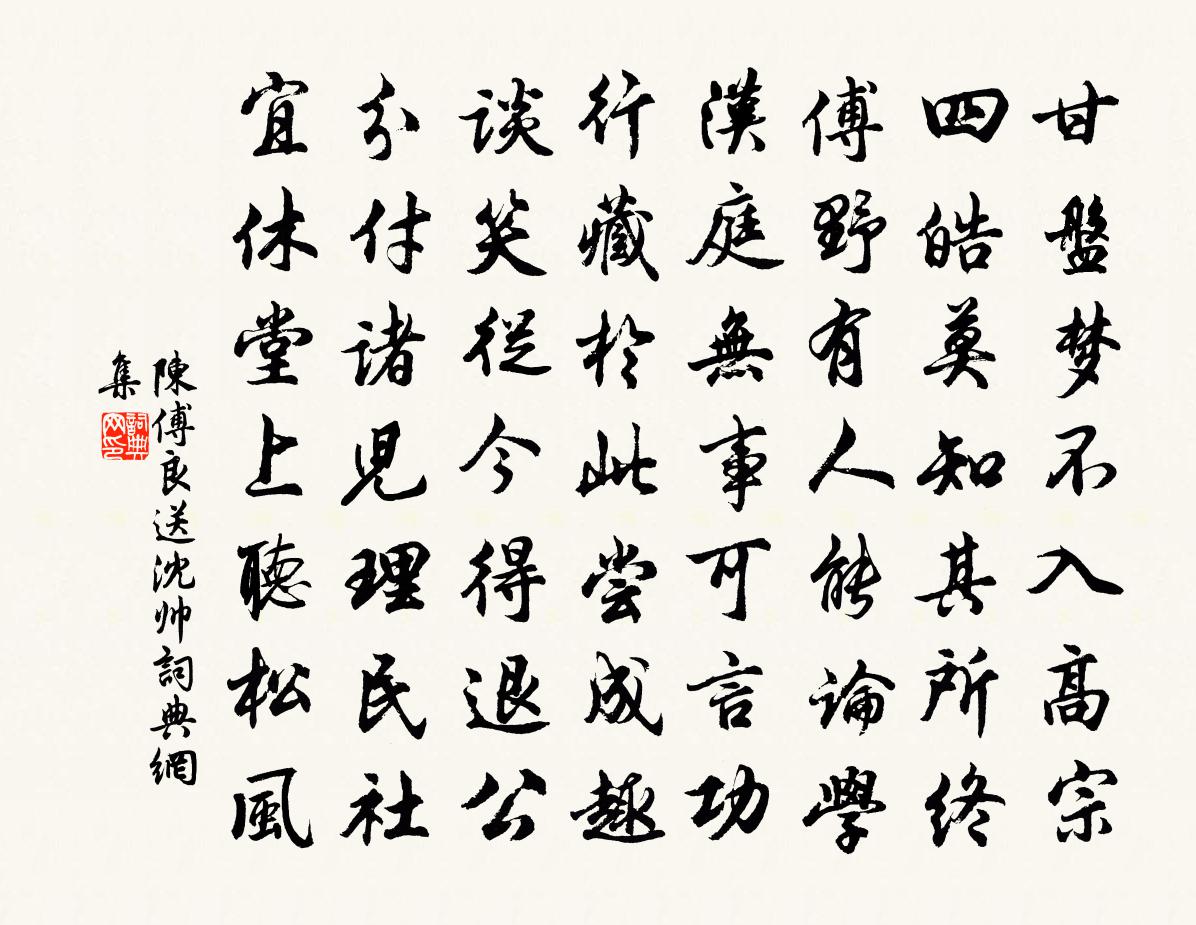 甘盤梦不入高宗
四皓莫知其所終
傅野有人能論學
漢庭無事可言功
行藏於此尝成趣
談笑從今得退公
分付諸児理民社
宜休堂上聽松風
陳傅良送沈帅詞典網
集
詞典网印